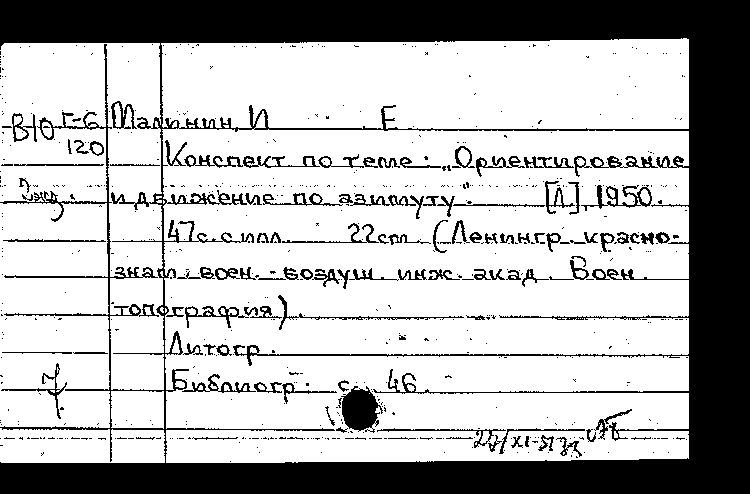 В/О Г-6 Малинин, И Е
120
Конспект по теме: „Ориентирование
2экз. и движение по азимуту". [Л], 1950.
47с. с илл. 22cm (Ленингр. красно-
знам. воен.-воздуш. инж. акад. Воен.
топография).
Литогр.
Библиогр: с. 46.